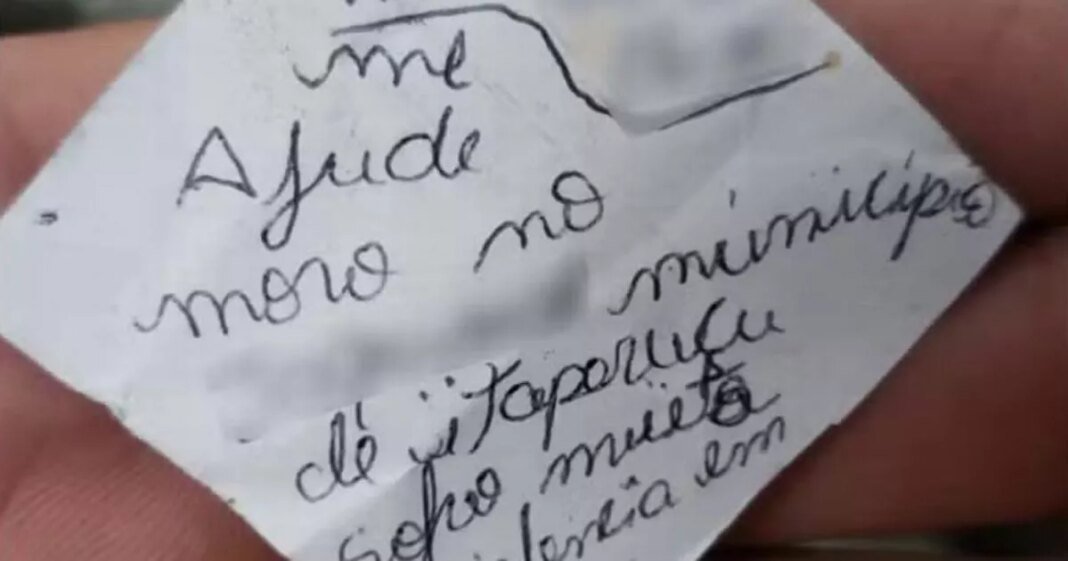 me
Ajude
moro no
município
dé iitaparucu
sofro muieta
lencia em